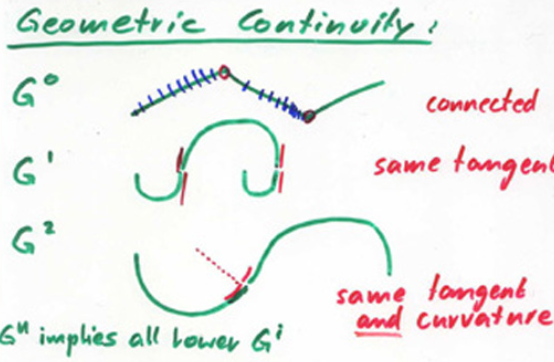 Geometric Continuity:
G⁰ connected
G¹ same tangent
G²
same tangent
and curvature
Gⁿ implies all lower Gⁱ